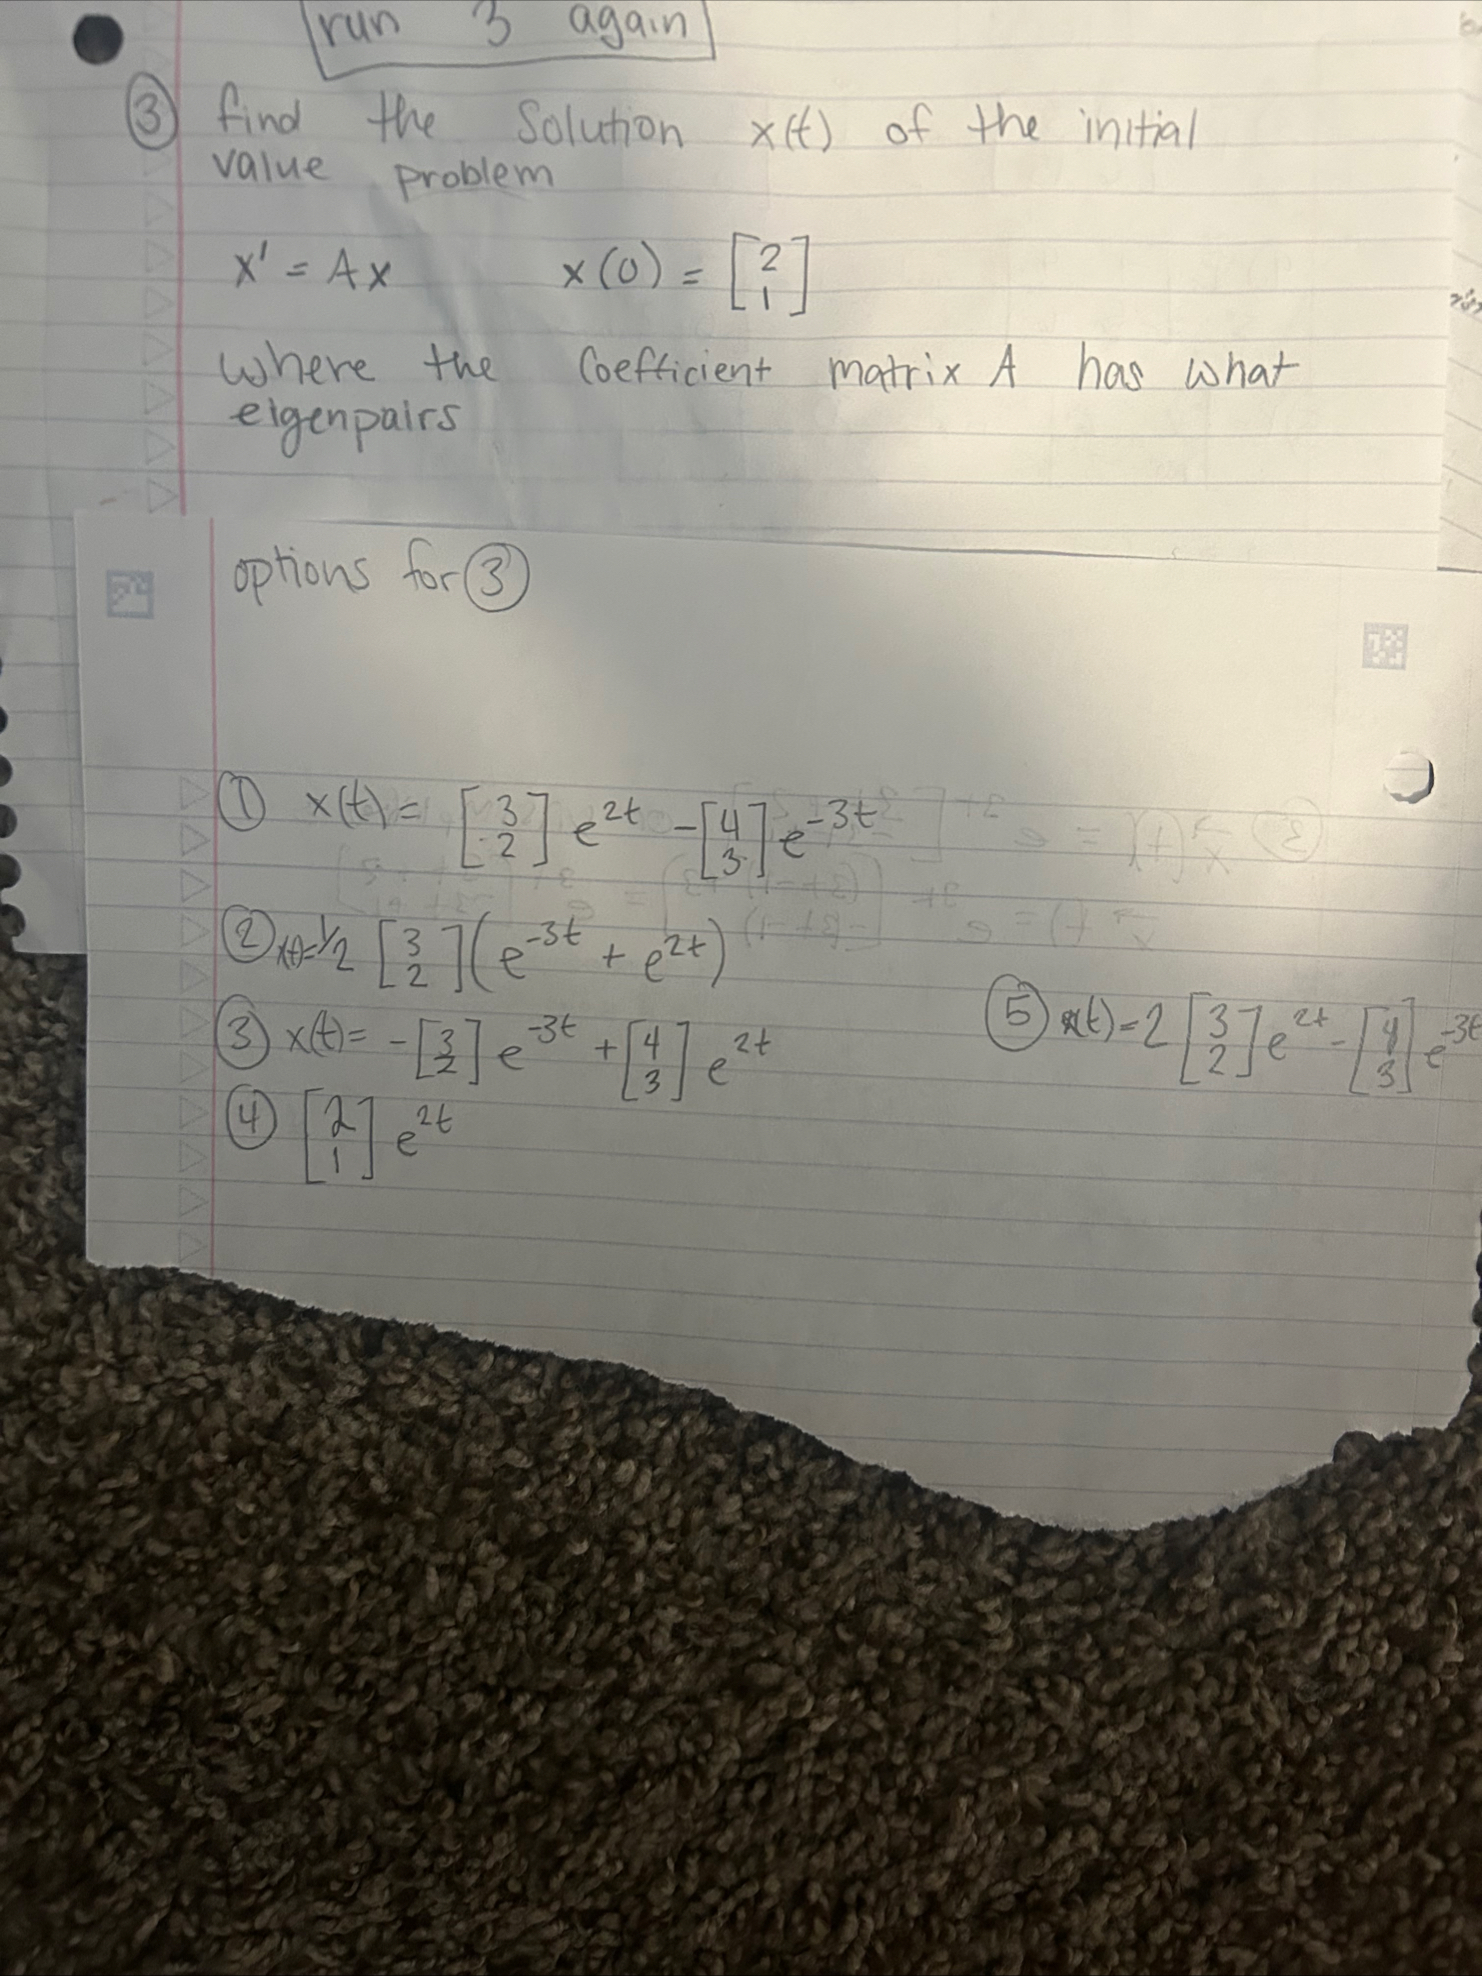 run 3 again
③ find the solution x(t) of the initial
value problem
x' = Ax x(0) = [2 1]
where the coefficient matrix A has what
eigenpairs
options for ③
① x(t) = [3 2] e^2t - [4 3] e^-3t
② x(t)=1/2 [3 2] (e^-3t + e^2t)
③ x(t)= - [3 2] e^-3t + [4 3] e^2t
④ [2 1] e^2t
⑤ x(t)=2 [3 2] e^2t - [4 3] e^-3t